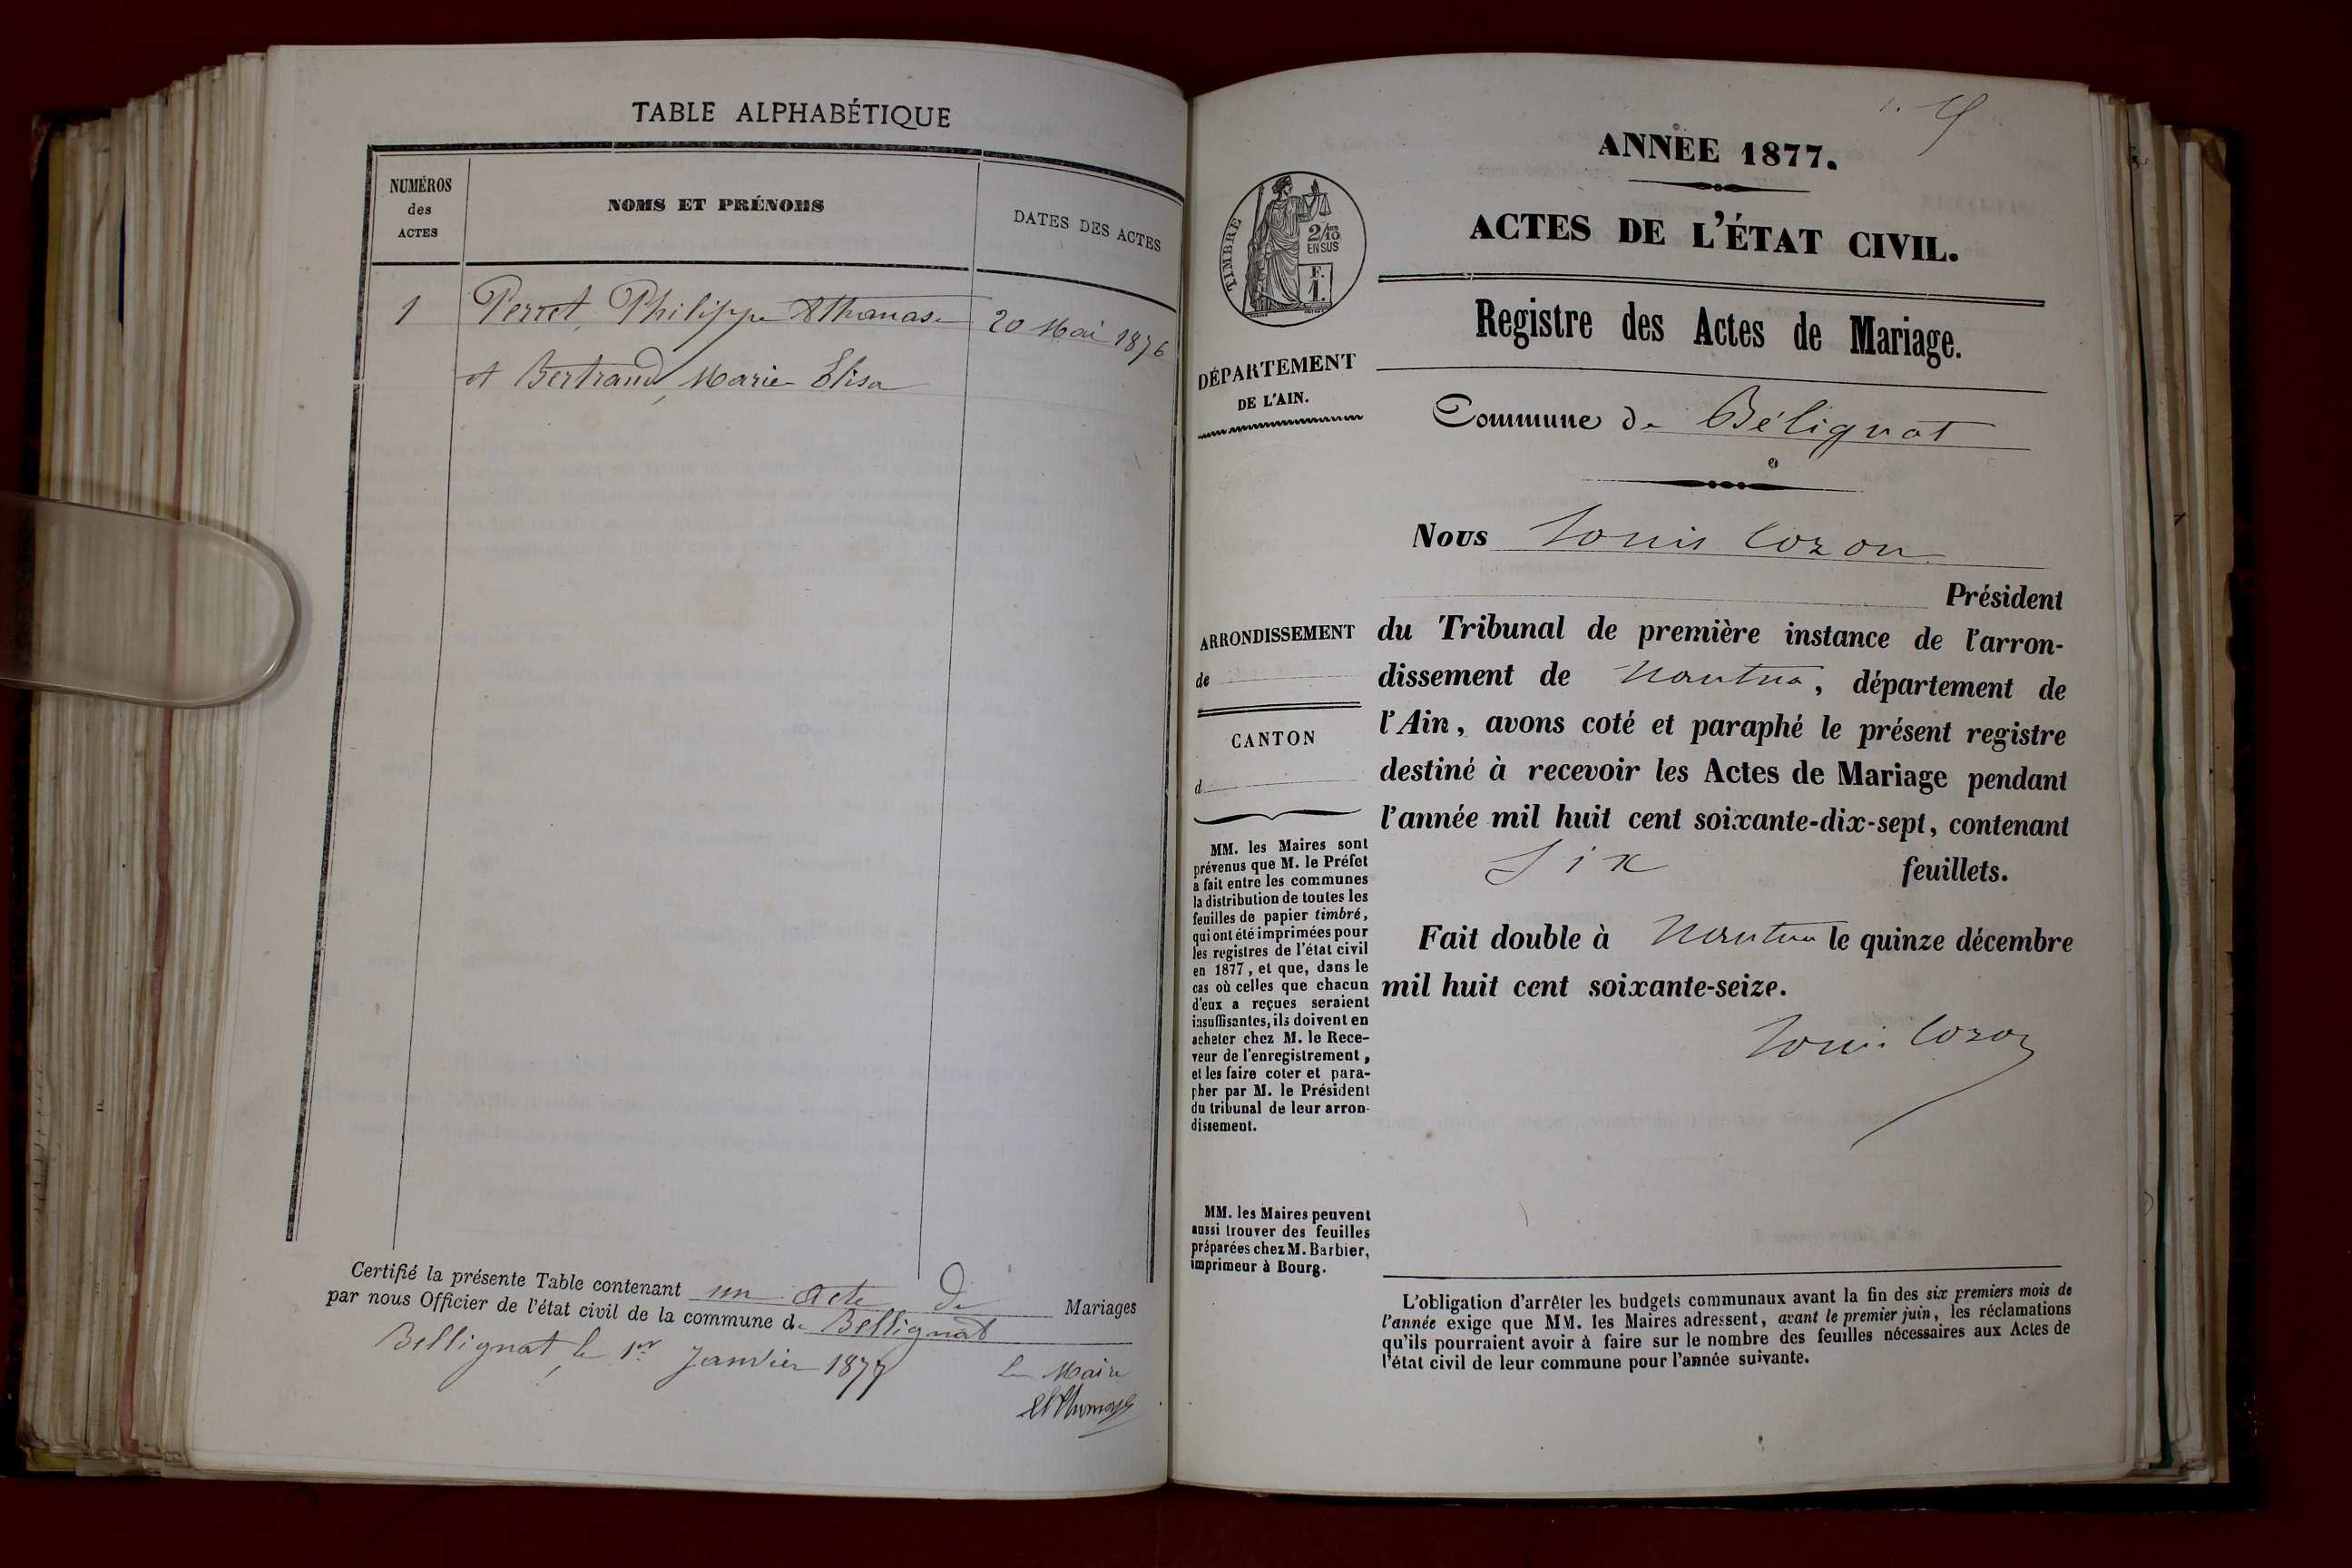 TABLE ALPHABÉTIQUE
NUMÉROS
des
ACTES
NOMS ET PRÉNOMS
DATES DES ACTES
1 Perret, Philippe Athanase 20 Mai 1876
et Bertrand, Marie Elisa
Certifié la présente Table contenant un acte de Mariages
par nous Officier de l'état civil de la commune de Bellignat
Bellignat, le 1er Janvier 1877
Le Maire
1.
ANNÉE 1877.
ACTES DE L'ÉTAT CIVIL.
TIMBRE
2/10
EN SUS
F.
1.
Registre des Actes de Mariage.
DÉPARTEMENT
DE L'AIN.
Commune de Bélignat
Nous Louis Cozon
Président
du Tribunal de première instance de l'arron-
dissement de Nantua, département de
l'Ain, avons coté et paraphé le présent registre
destiné à recevoir les Actes de Mariage pendant
l'année mil huit cent soixante-dix-sept, contenant
Six feuillets.
Fait double à Nantua le quinze décembre
mil huit cent soixante-seize.
Louis Cozon
ARRONDISSEMENT
de
CANTON
d
MM. les Maires sont
prévenus que M. le Préfet
a fait entre les communes
la distribution de toutes les
feuilles de papier timbré,
qui ont été imprimées pour
les registres de l'état civil
en 1877, et que, dans le
cas où celles que chacun
d'eux a reçues seraient
insuffisantes, ils doivent en
acheter chez M. le Rece-
veur de l'enregistrement,
et les faire coter et para-
pher par M. le Président
du tribunal de leur arron-
dissement.
MM. les Maires peuvent
aussi trouver des feuilles
préparées chez M. Barbier,
imprimeur à Bourg.
L'obligation d'arrêter les budgets communaux avant la fin des six premiers mois de
l'année exige que MM. les Maires adressent, avant le premier juin, les réclamations
qu'ils pourraient avoir à faire sur le nombre des feuilles nécessaires aux Actes de
l'état civil de leur commune pour l'année suivante.